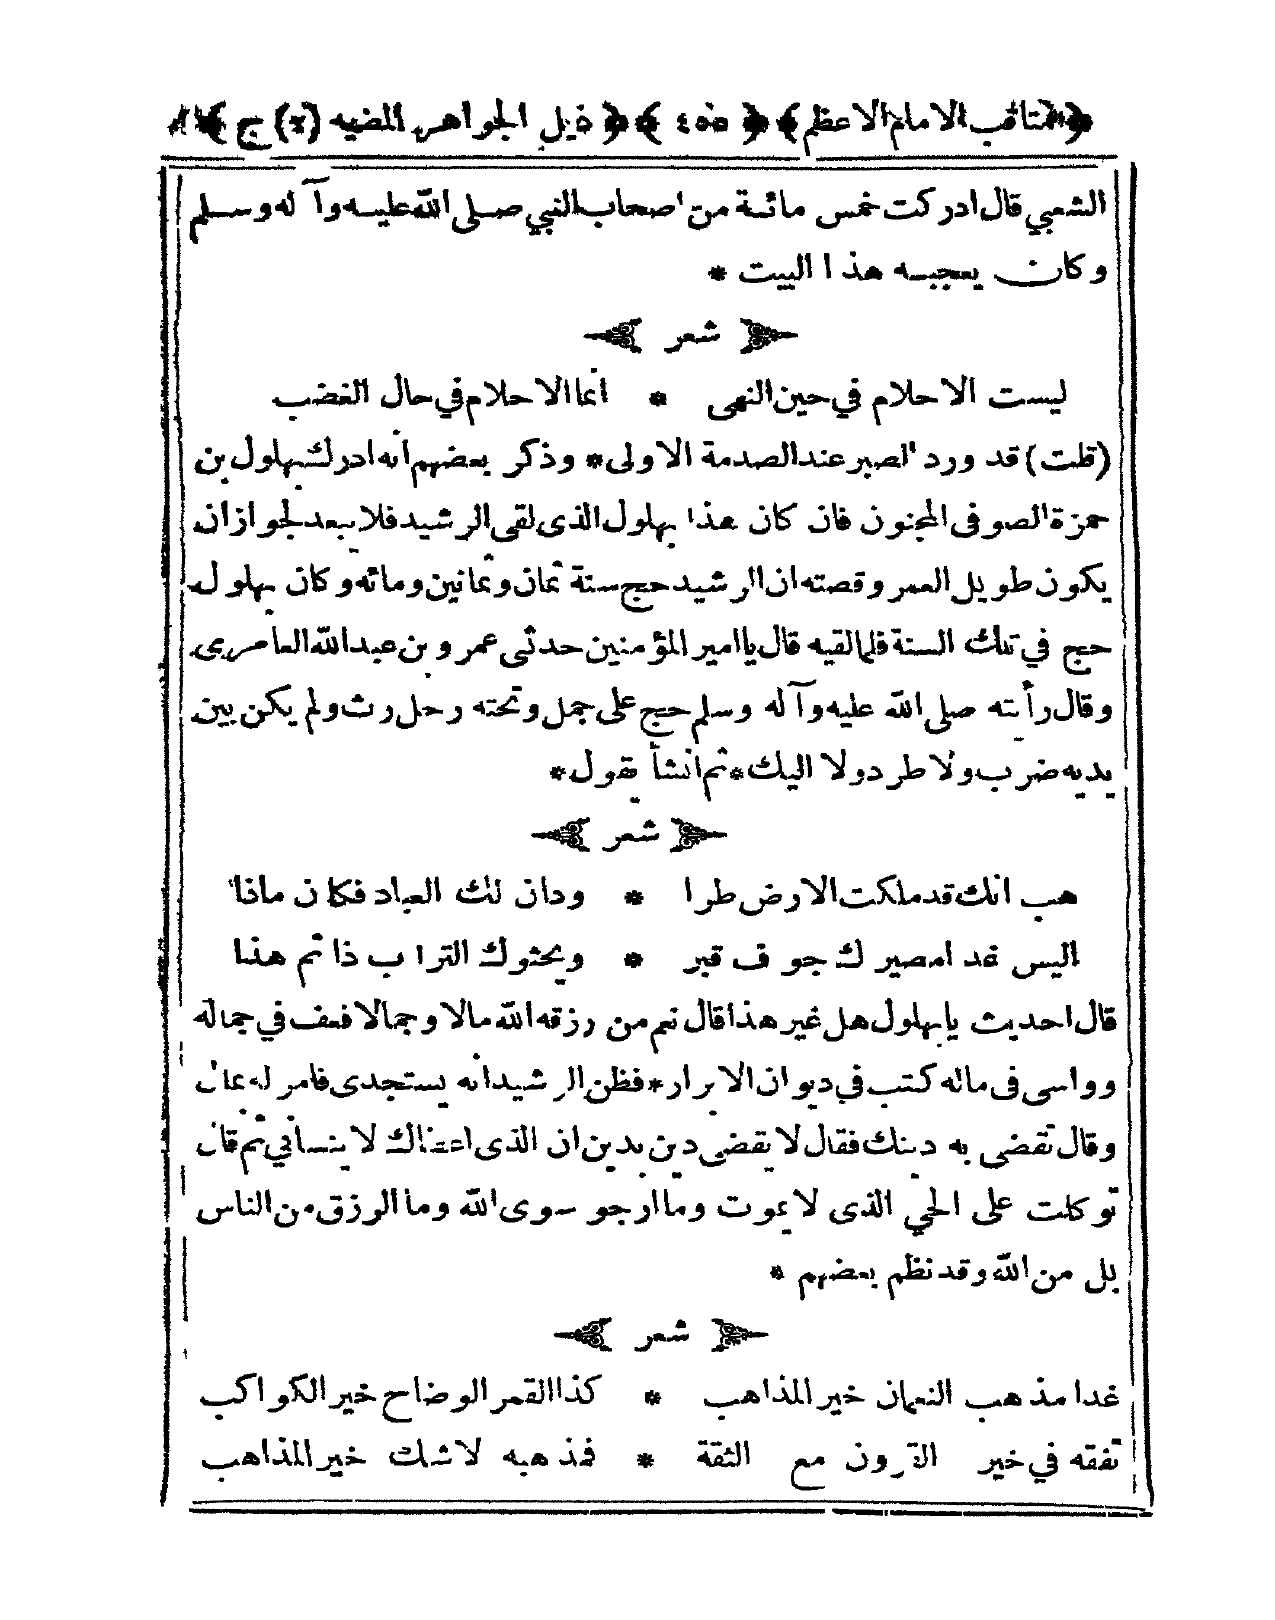 ﴿مناقب الامام الاعظم﴾ ﴿٤٥٥﴾ ﴿ذيل الجواهر المضيه (٢) ج﴾
الشعبي قال ادركت خمس مائة من اصحاب النبي صلى الله عليه وآله وسلم
وكان يعجبه هذا البيت *
شعر
ليست الاحلام في حين النهى * انما الاحلام في حال الغضب
(قلت) قد ورد الصبر عند الصدمة الاولى * وذكر بعضهم انه ادرك بهلول بن
حمزة الصوفى المجنون فان كان هذا بهلول الذى لقى الرشيد فلا يبعد لجواز ان
يكون طويل العمر وقصته ان الرشيد حج سنة ثمان وثمانين ومائه وكان بهلول
حج في تلك السنة فلما لقيه قال يا امير المؤمنين حدثنى عمرو بن عبد الله العامرى
وقال رأيته صلى الله عليه وآله وسلم حج على جمل وتحته رحل رث ولم يكن بين
يديه ضرب ولا طرد ولا اليك * ثم انشأ يقول *
شعر
هب انك قد ملكت الارض طرا * ودان لك العباد فكان ماذا
اليس غدا مصيرك جوف قبر * ويحثوك التراب ذا ثم هذا
قال احديث يا بهلول هل غير هذا قال نعم من رزقه الله مالا وجمالا فعف في جماله
وواسى فى ماله كتب في ديوان الابرار * فظن الرشيد انه يستجدى فامر له بمال
وقال تقضى به دينك فقال لا يقضى دين بدين ان الذى اعطاك لا ينساني ثم قال
توكلت على الحي الذى لا يموت وما ارجو سوى الله وما الرزق من الناس
بل من الله وقد نظم بعضهم *
شعر
غدا مذهب النعمان خير المذاهب * كذا القمر الوضاح خير الكواكب
تفقه في خير القرون مع الثقة * فمذهبه لا شك خير المذاهب